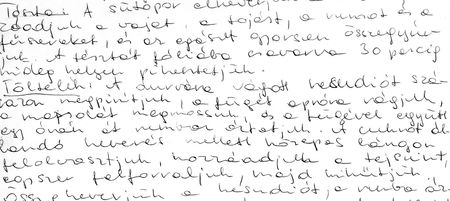 Tészta: A sütőport elkeverjük a
záadjuk a vajat, a tojást, a rumot és a
fűszereket, és az egészet gyorsan összegyúr-
juk. A tésztát fóliába csavarva 30 percig
hideg helyen pihentetjük.
Töltelék: A durvára vágott kesudiót szá-
razon megpirítjuk, a fügét apróra vágjuk,
a mazsolát megmossuk, és a fügével együtt
egy órán át rumban áztatjuk. A cukrot ál-
landó keverés mellett közepes lángon
felolvasztjuk, hozzáadjuk a tejszínt,
egyszer felforraljuk, majd kihűtjük.
Összekeverjük a kesudiót, a rumba áz-